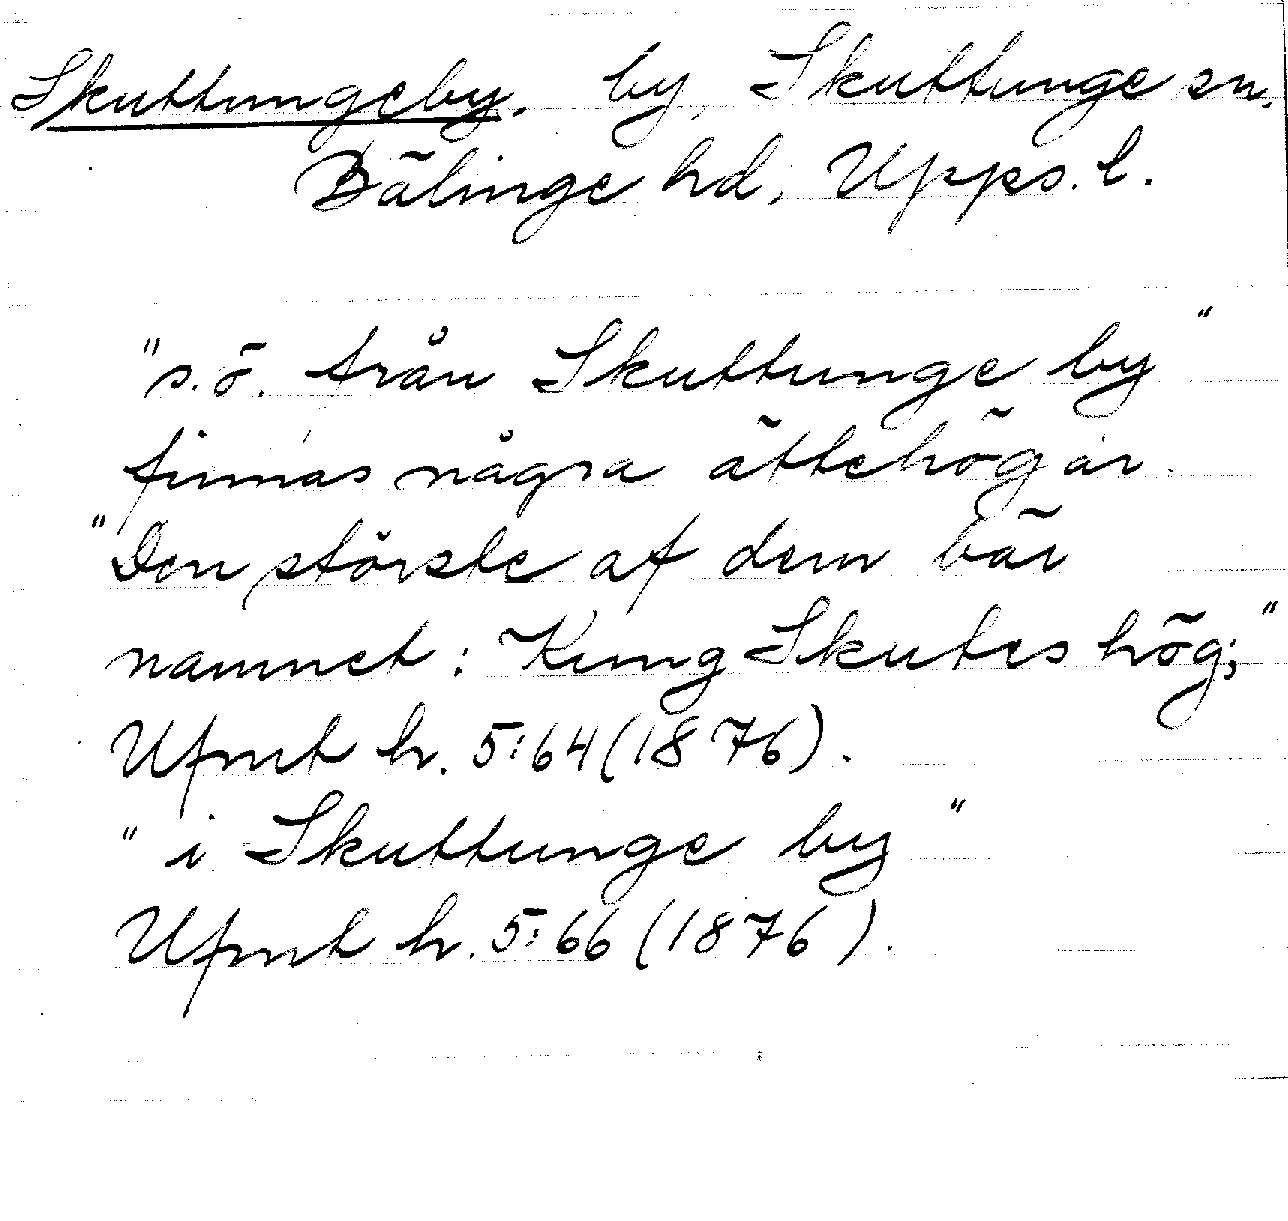 Skuttungeby. by, Skuttunge sn.
Bälinge hd, Upps. l.
"s.ö. från Skuttunge by"
finnas några ättehögar.
"Den störste af dem bär
namnet: Kung Skutes hög;"
Ufmt h. 5:64 (1876).
"i Skuttunge by"
Ufmt h. 5:66 (1876).